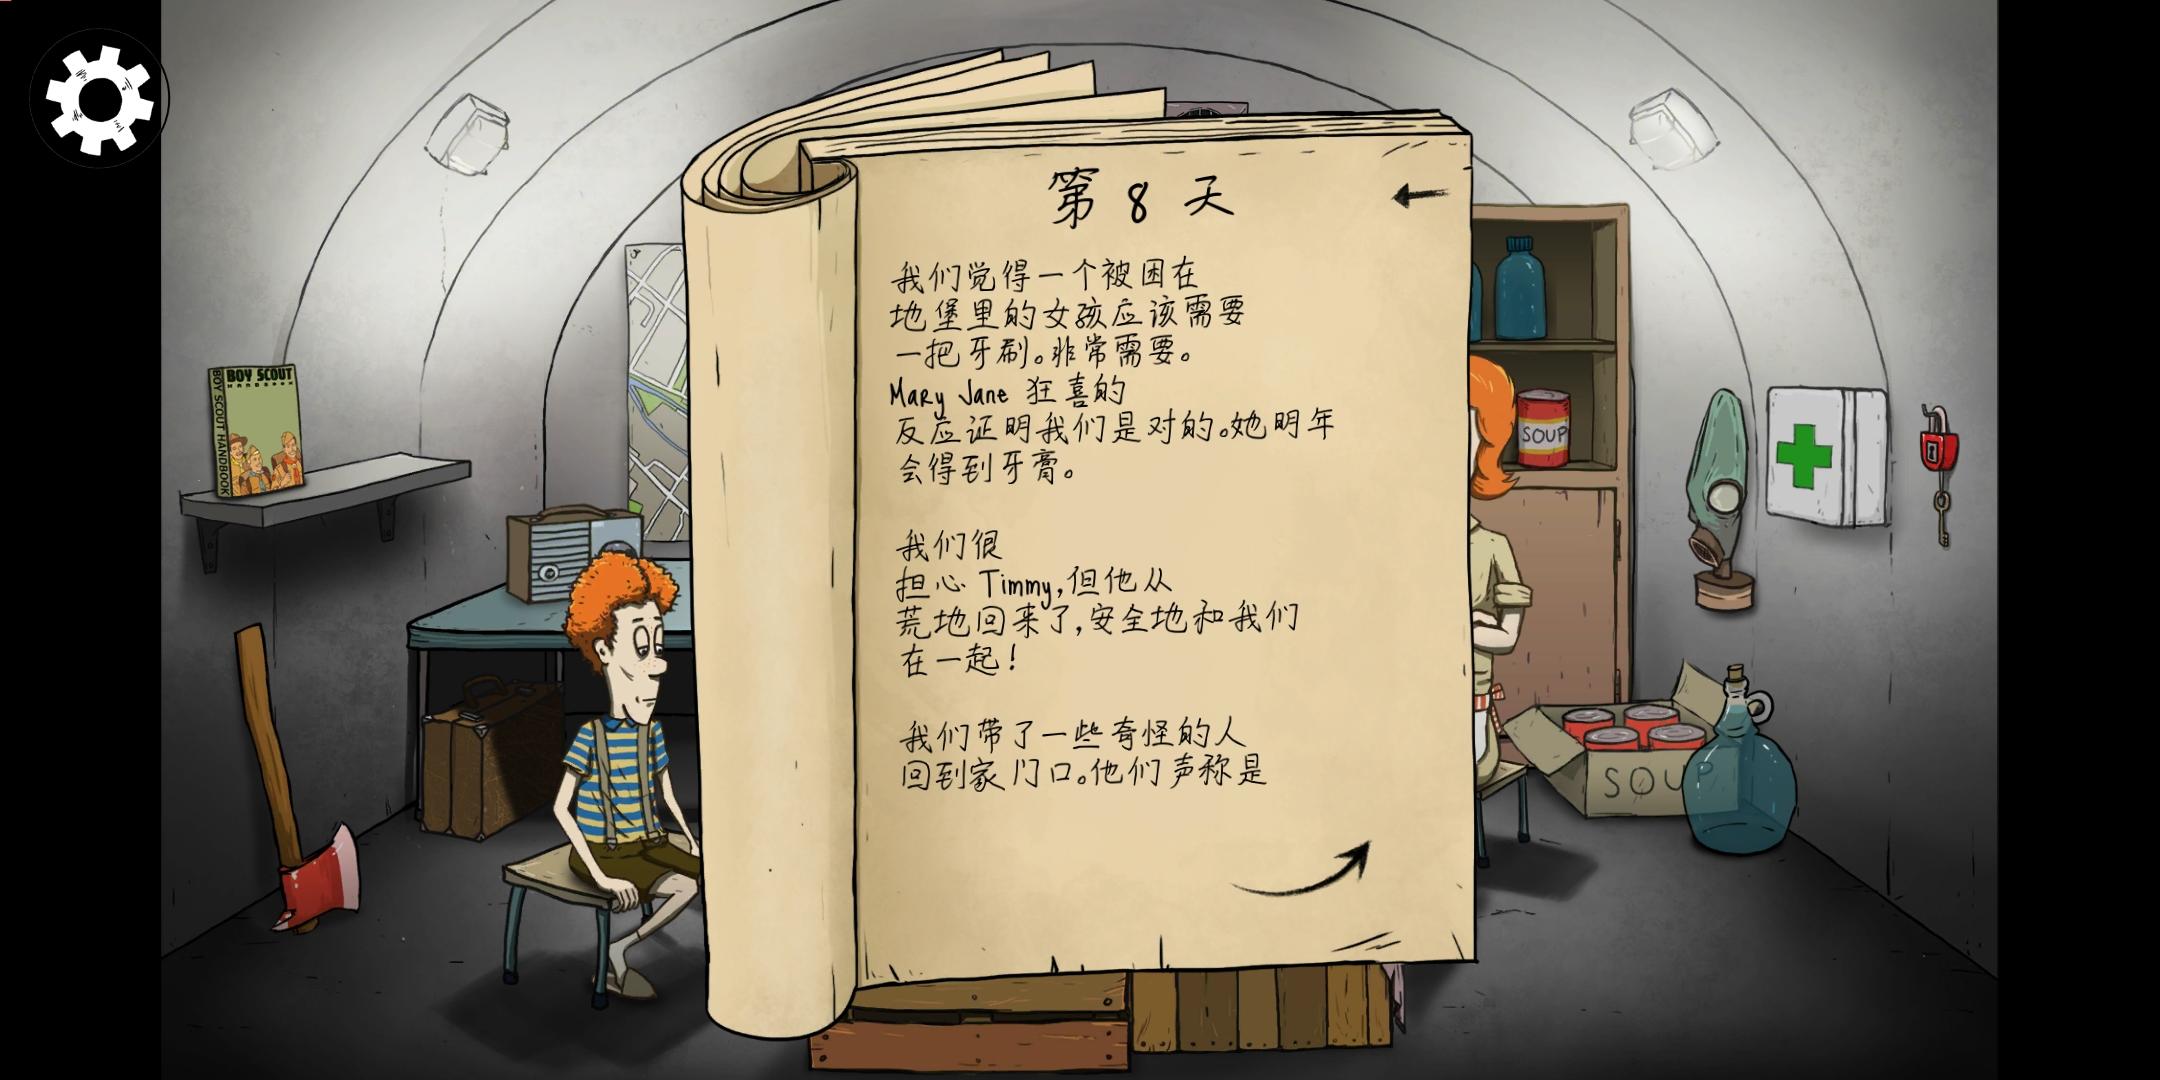 第 8 天
我们觉得一个被困在
地堡里的女孩应该需要
一把牙刷。非常需要。
Mary Jane 狂喜的
反应证明我们是对的。她明年
会得到牙膏。
我们很
担心 Timmy,但他从
荒地回来了,安全地和我们
在一起!
我们带了一些奇怪的人
回到家门口。他们声称是
BOY SCOUT
HANDBOOK
BOY SCOUT HANDBOOK
SOUP
SOUP